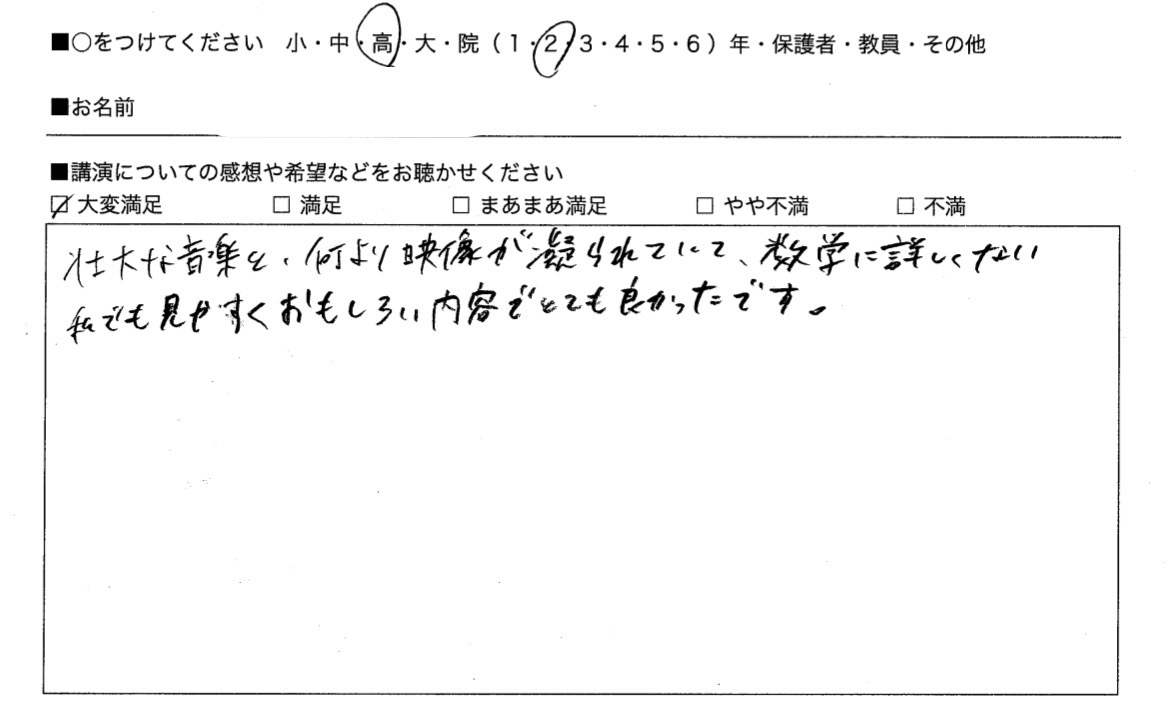 ■○をつけてください 小・中・高・大・院（1・2・3・4・5・6）年・保護者・教員・その他
■お名前
■講演についての感想や希望などをお聴かせください
☑ 大変満足 □ 満足 □ まあまあ満足 □ やや不満 □ 不満
壮大な音楽と、何より映像が凝られていて、数学に詳しくない
私でも見やすくおもしろい内容でとても良かったです。